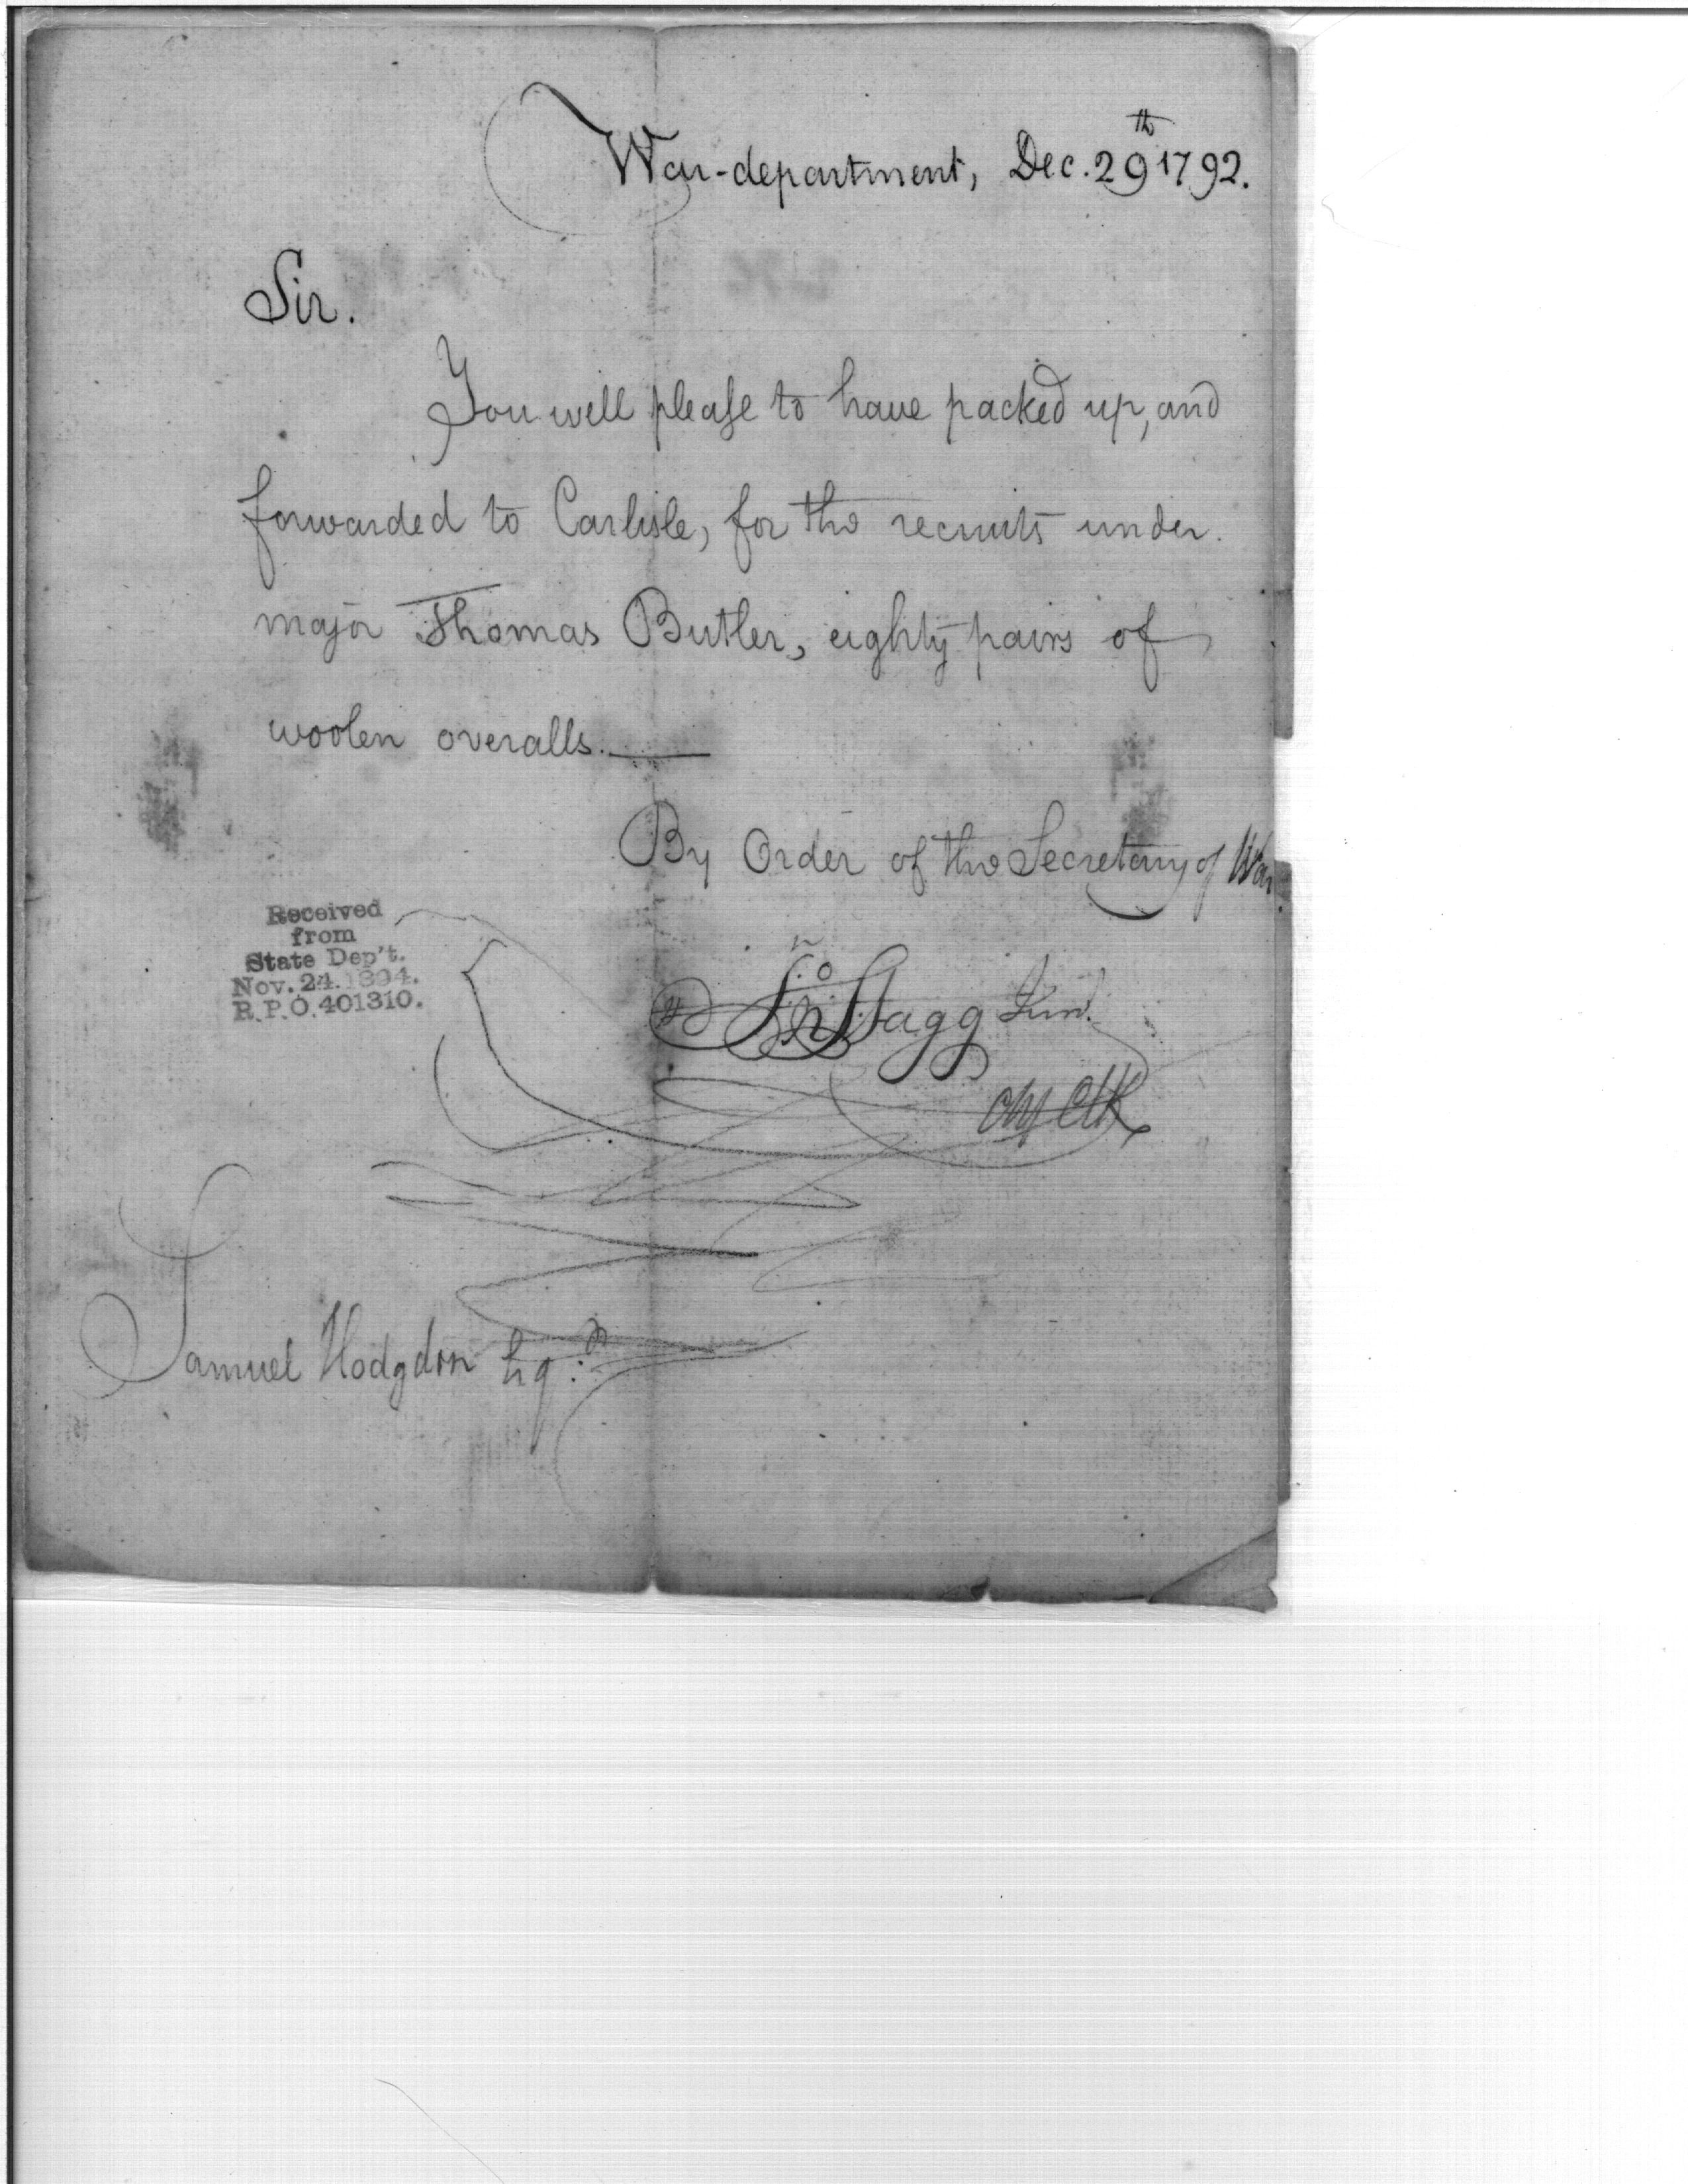 War-department, Dec. 29th 1792.
Sir.
You will please to have packed up, and
forwarded to Carlisle, for the recruits under
major Thomas Butler, eighty pairs of
woolen overalls.
By Order of the Secretary of War
Jno Stagg Junr.
Chf Clk
Received
from
State Dep't.
Nov. 24. 1894.
R.P.O. 401310.
Samuel Hodgdon Esqr